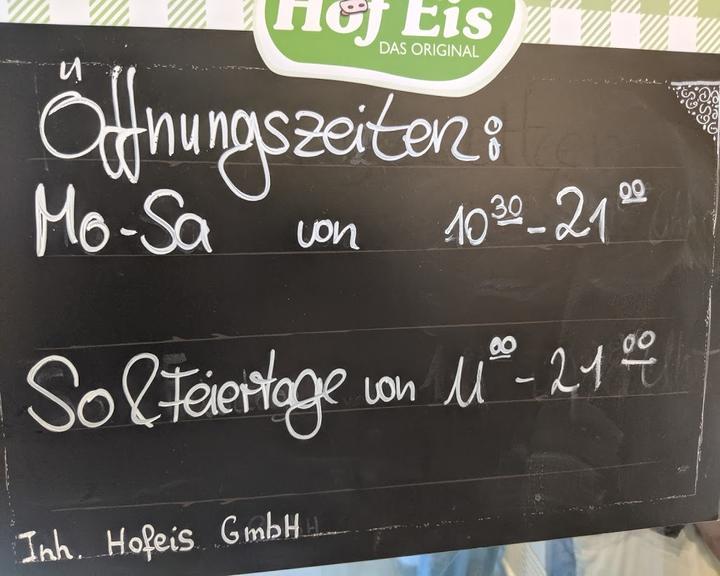 Hof Eis
DAS ORIGINAL
Öffnungszeiten:
Mo-Sa von 10³⁰-21⁰⁰
So & Feiertage von 11⁰⁰-21⁰⁰
Inh. Hofeis GmbH